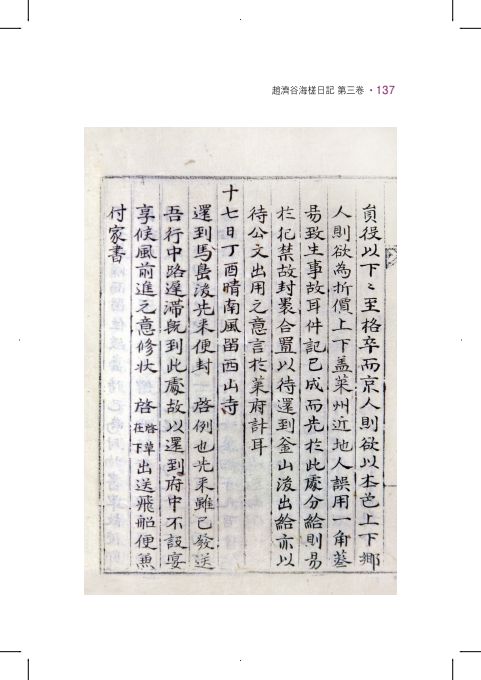 趙濟谷海槎日記 第三卷 · 137
員役以下〻至格卒而京人則欲以本色上下鄕
人則欲為折價上下盖萊州近地人誤用一角蔘
易致生事故耳件記已成而先扵此處分給則易
扵犯禁故封褁合置以待還到釜山後出給亦以
待公文出用之意言扵萊府計耳
十七日丁酉晴南風留西山寺
還到馬島後先来便封 啓例也先来雖已發送
吾行中路遲滯旣到此處故以還到府中不設宴
享候風前進之意修狀 啓啓草在下出送飛船便兼
付家書